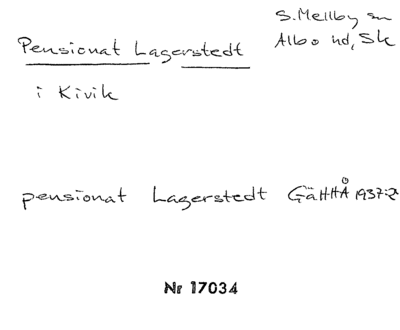 Pensionat Lagerstedt
i Kivik
S. Mellby sn
Albo hd, Sk
pensionat Lagerstedt GäHHÅ 1937:2
Nr 17034